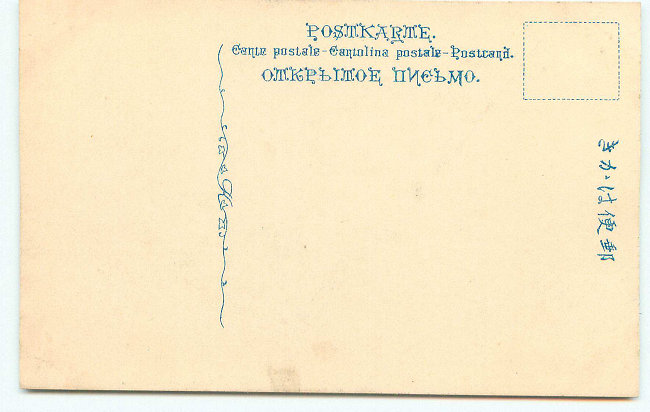 POSTKARTE.
Carte postale-Cartolina postale-Postcard.
ОТКРЫТОЕ ПИСЬМО.
郵便はがき